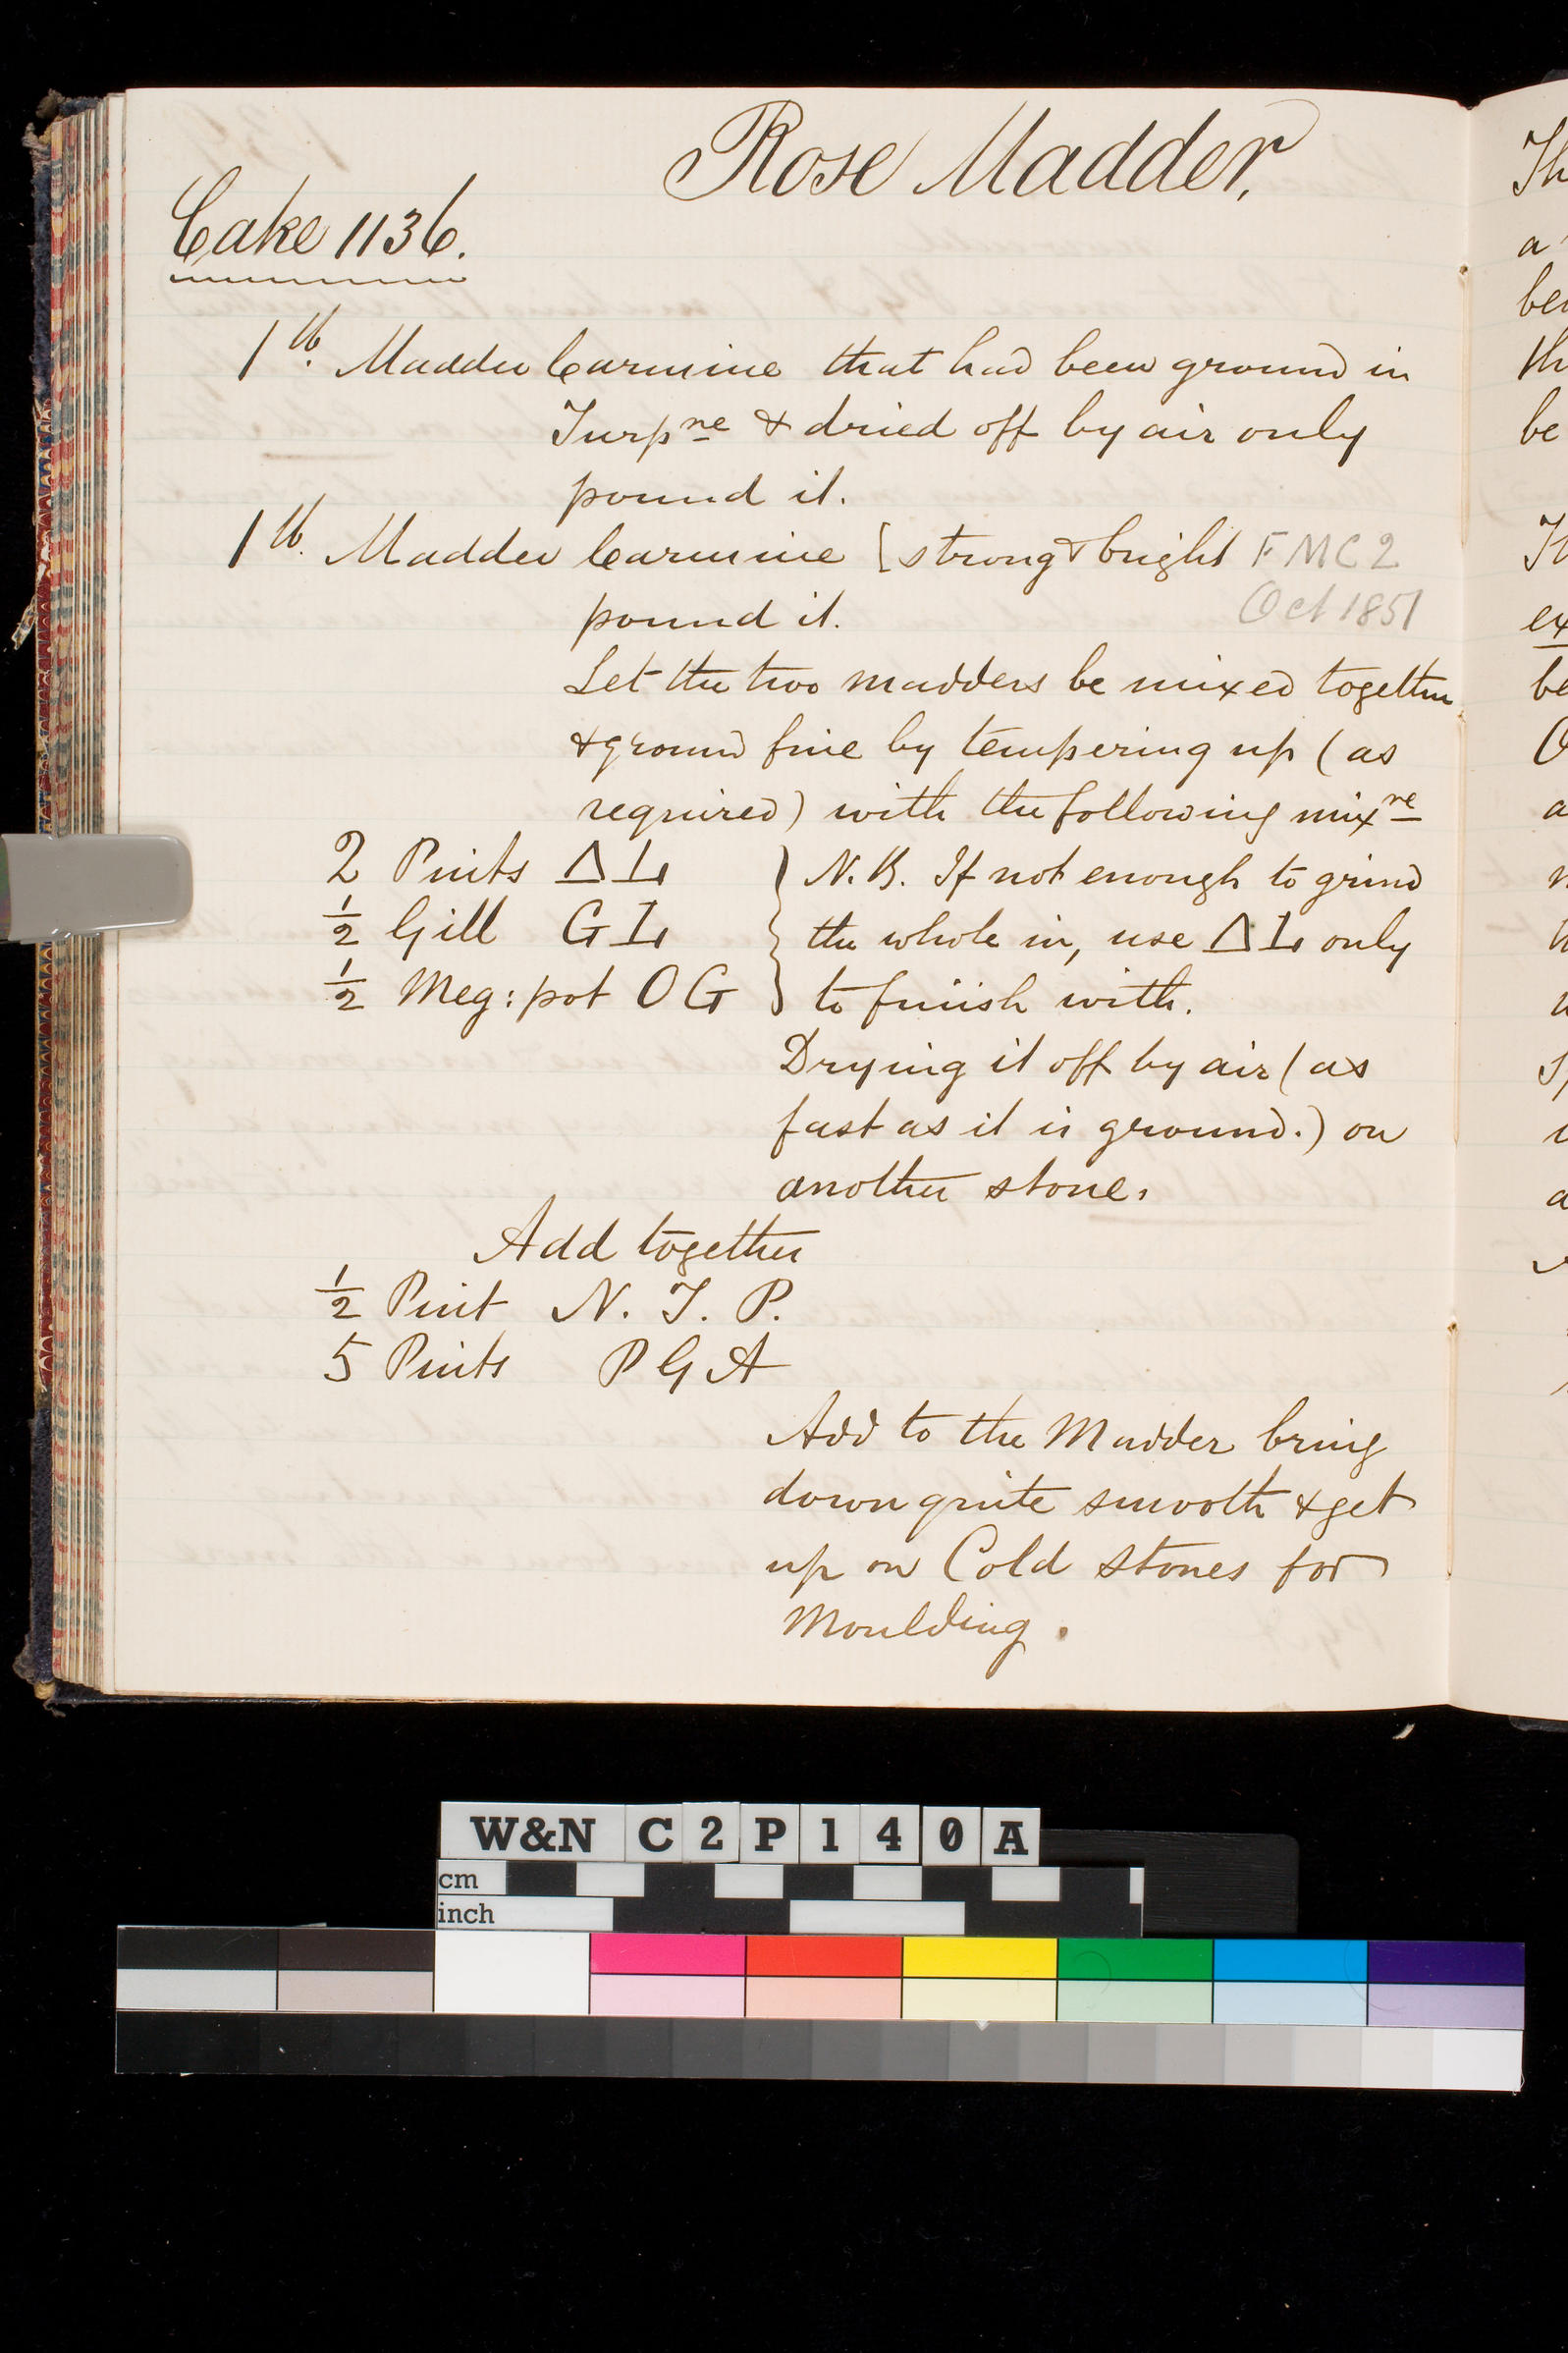 Rose Madder,
Cake 1136.
1 lb. Madder Carmine that had been ground in
Turpne & dried off by air only
pound it.
1 lb. Madder Carmine [strong & bright FMC2
pound it. Oct 1851
Let the two madders be mixed together
& ground fine by tempering up (as
required) with the following mixre
2 Pints Δ L } N.B. If not enough to grind
½ Gill G L } the whole in, use Δ L only
½ Meg: pot O G } to finish with.
Drying it off by air (as
fast as it is ground.) on
another stone.
Add together
½ Pint N. T. P.
5 Pints P G A
Add to the Madder bring
down quite smooth & get
up on Cold stones for
Moulding.
Th
a
be
th
be
ex
be
W&N C2P140A
cm
inch